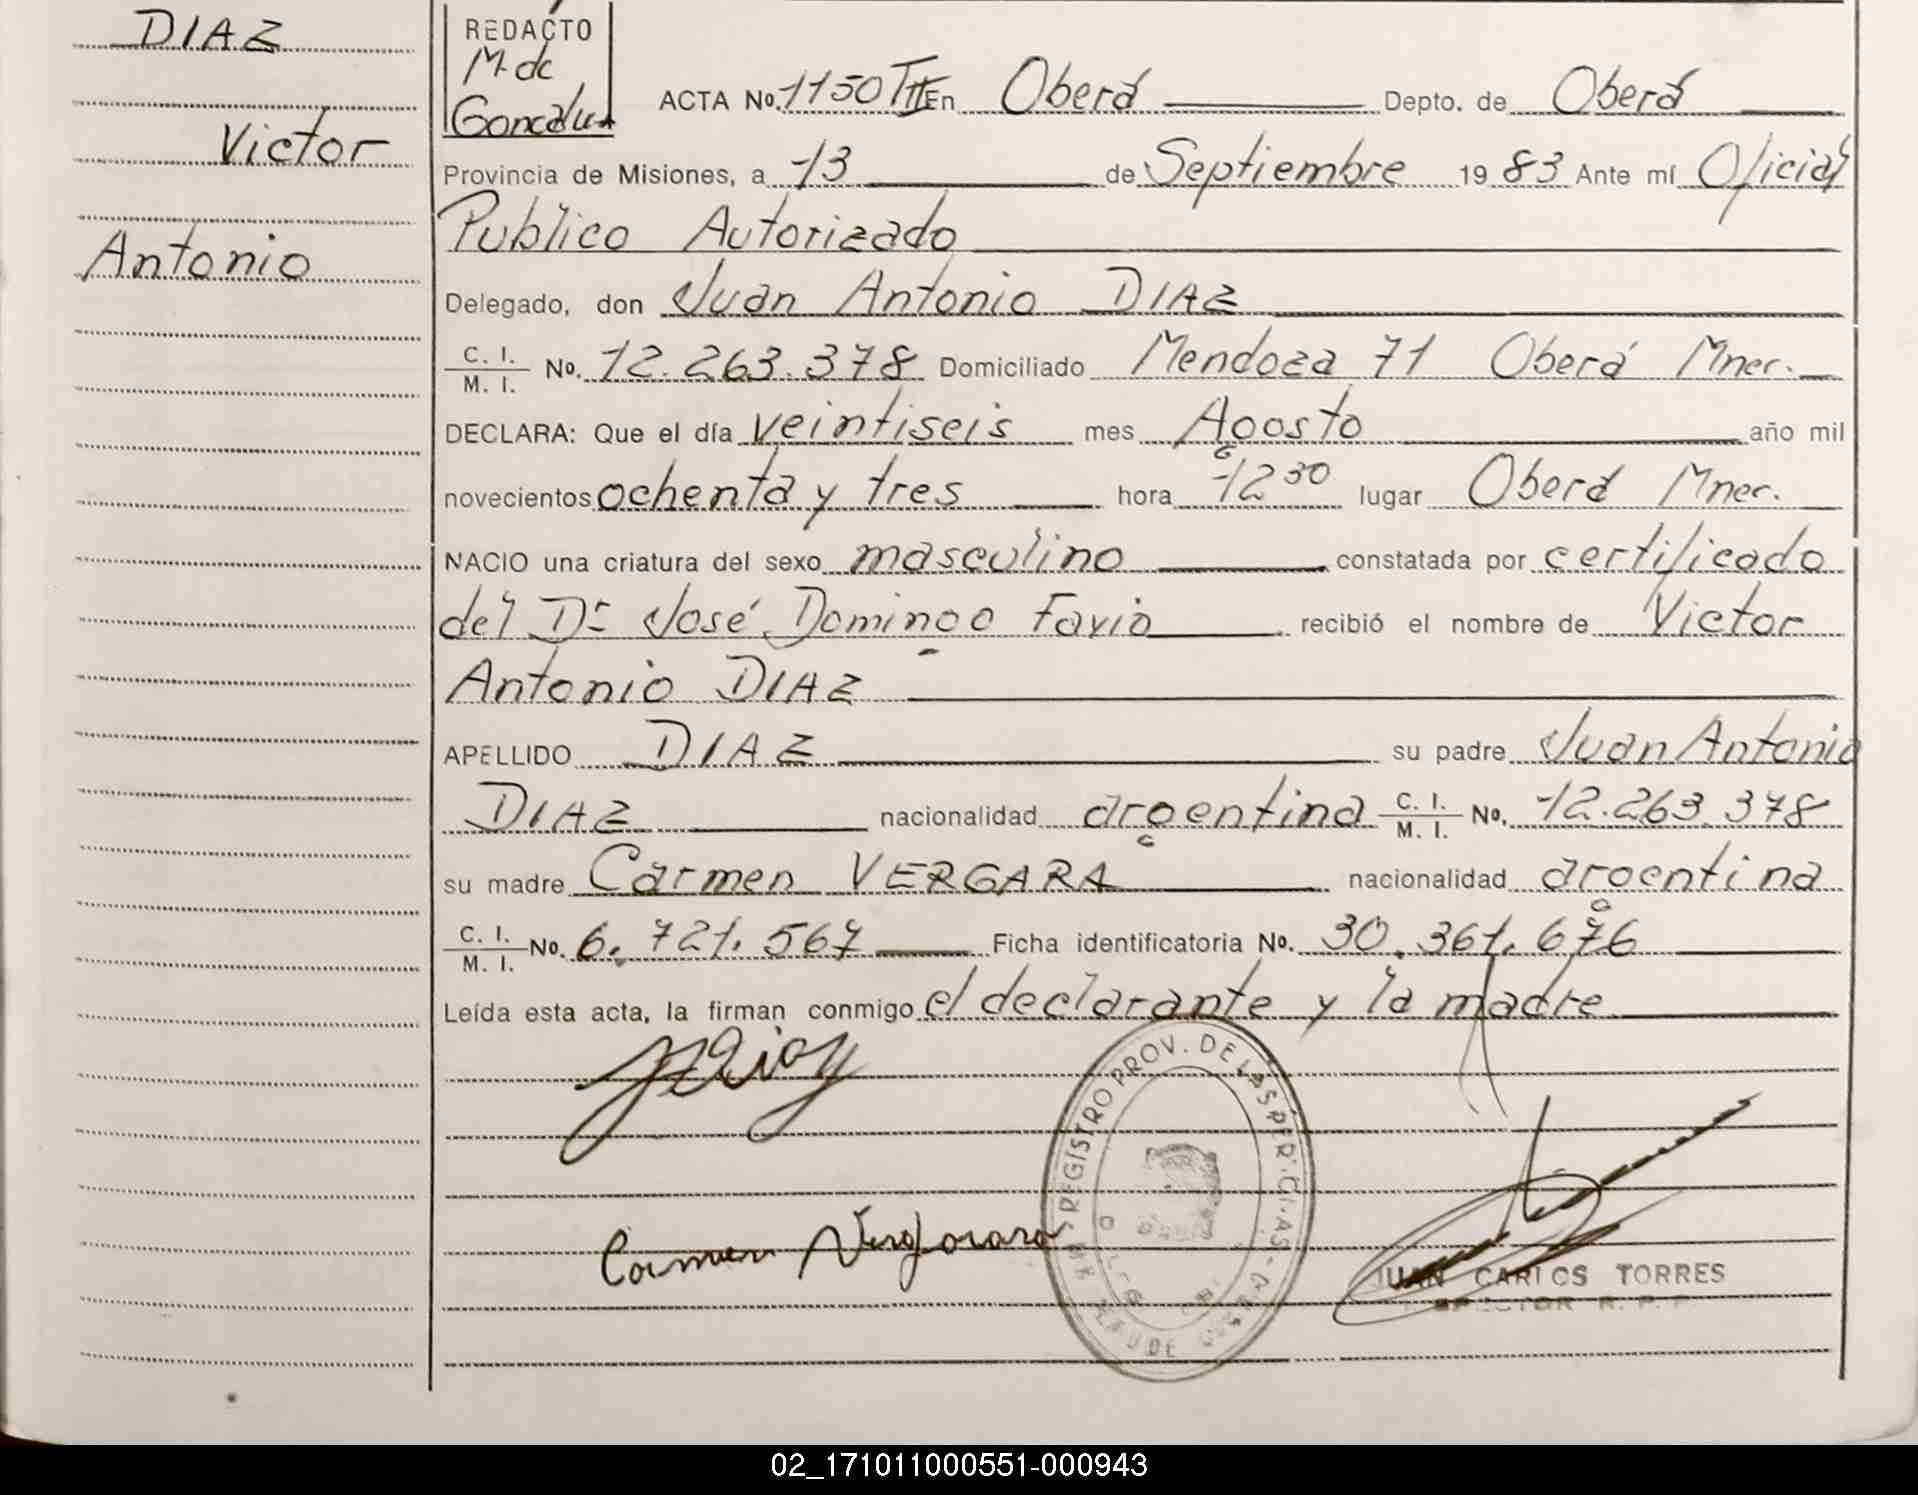 DIAZ
Victor
Antonio
REDACTO
M. de
ACTA No. 1150 TII En Oberá Depto. de Oberá
Provincia de Misiones, a 13 de Septiembre 1983 Ante mí Oficial
Publico Autorizado
Delegado, don Juan Antonio DIAZ
C. I. / M. I. No. 12.263.378 Domiciliado Mendoza 71 Oberá Mnes.
DECLARA: Que el día veintiseis mes Agosto año mil
novecientos ochenta y tres hora 12 30 lugar Oberá Mnes.
NACIO una criatura del sexo masculino constatada por certificado
del Dr José Domingo Favio recibió el nombre de Victor
Antonio DIAZ
APELLIDO DIAZ su padre Juan Antonio
DIAZ nacionalidad argentina C. I. / M. I. No. 12.263.378
su madre Carmen VERGARA nacionalidad argentina
C. I. / M. I. No. 6.721.567 Ficha identificatoria No. 30.361.676
Leída esta acta, la firman conmigo el declarante y la madre
REGISTRO PROV. DE LAS PER
Carmen
JUAN CARLOS TORRES
02_171011000551-000943